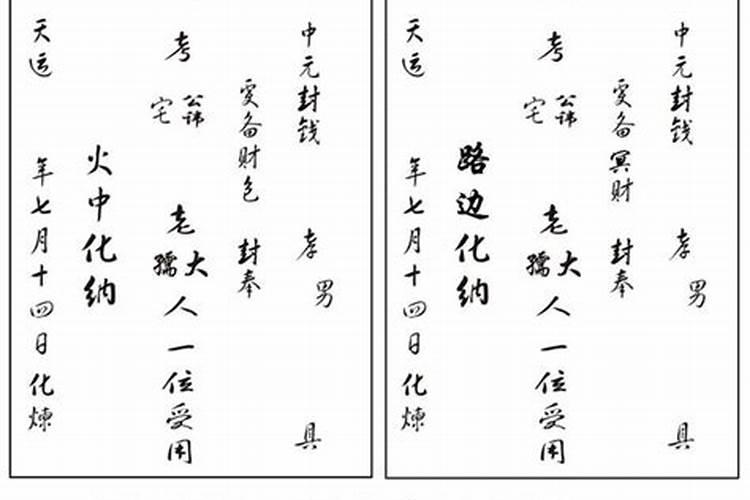 中元封钱 孝男 具
爰备财包 封奉
考 公讳 宅 老 大 孺 人一位受用
火中化纳
天运 年七月十四日化煉
中元封钱 孝男 具
爰备冥财 封奉
考 公讳 宅 老 大 孺 人一位受用
路边化纳
天运 年七月十四日化煉